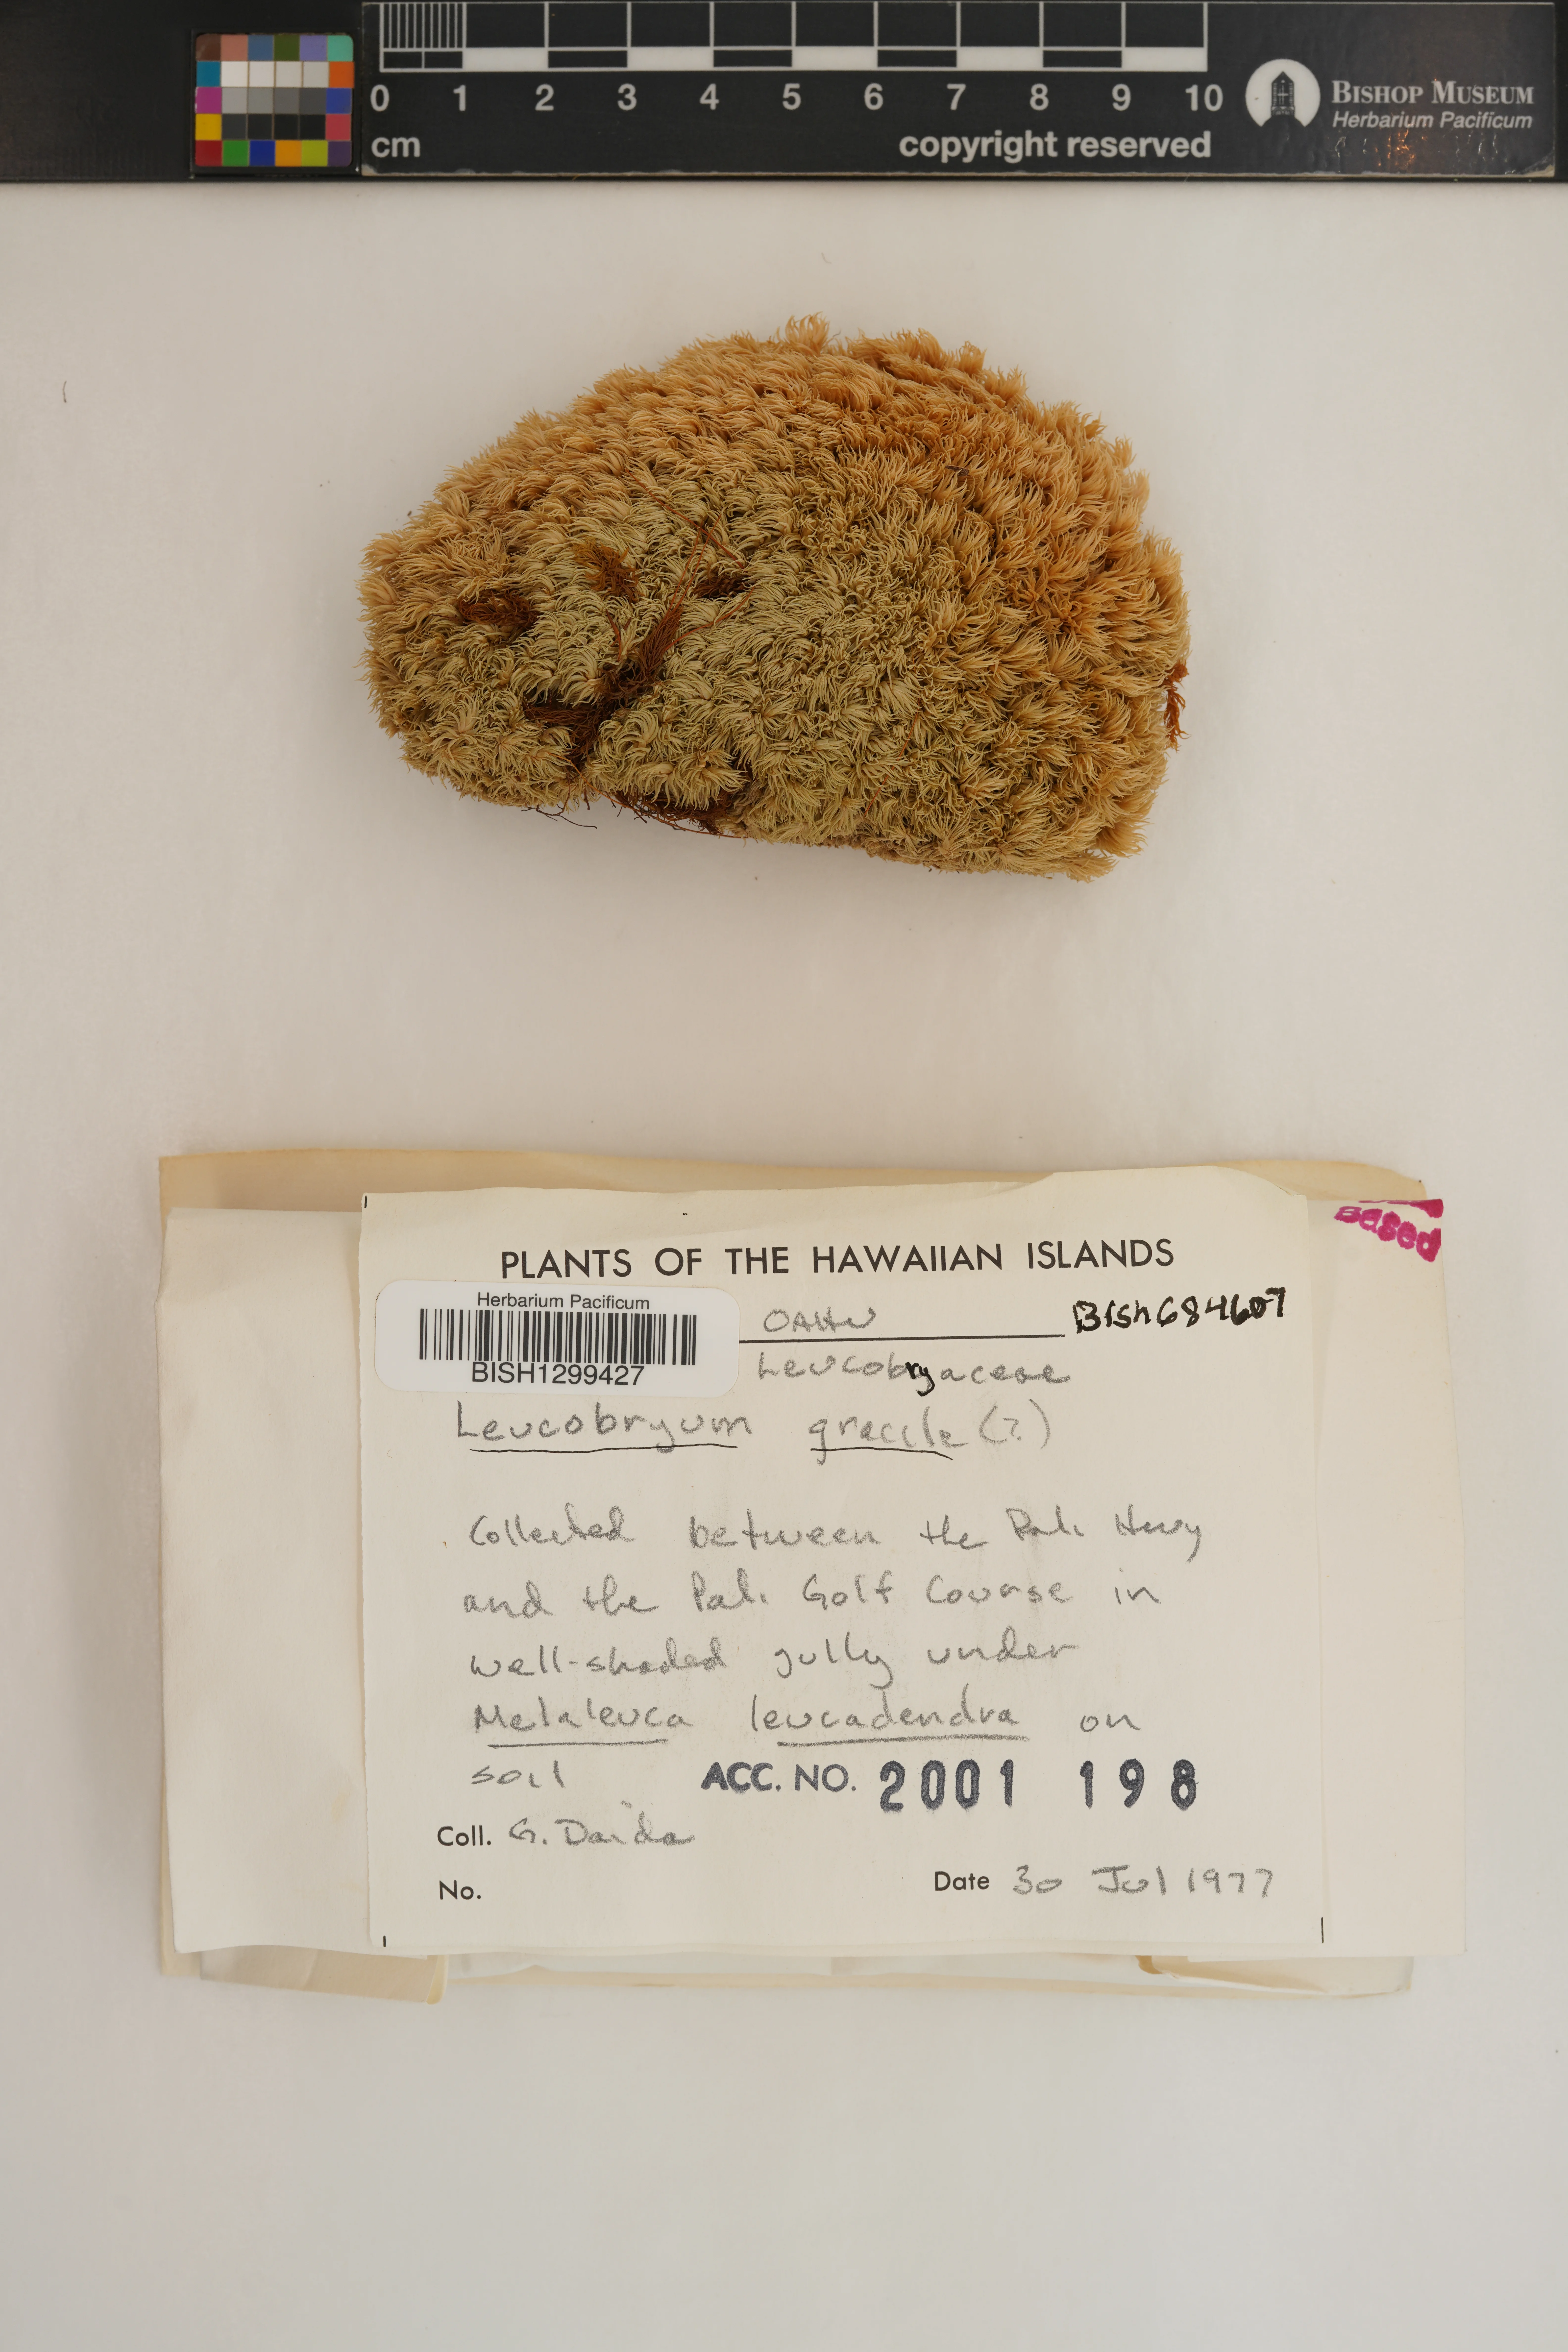 0 1 2 3 4 5 6 7 8 9 10
cm
copyright reserved
BISHOP MUSEUM
Herbarium Pacificum
based
PLANTS OF THE HAWAIIAN ISLANDS
Herbarium Pacificum
BISH1299427
OAHU
BISH684607
Leucobryaceae
Leucobryum gracile (?)
Collected between the Pali Hwy
and the Pali Golf Course in
well-shaded gully under
Melaleuca leucadendra on
soil
ACC. NO. 2001 198
Coll. G. Daida
No.
Date 30 Jul 1977